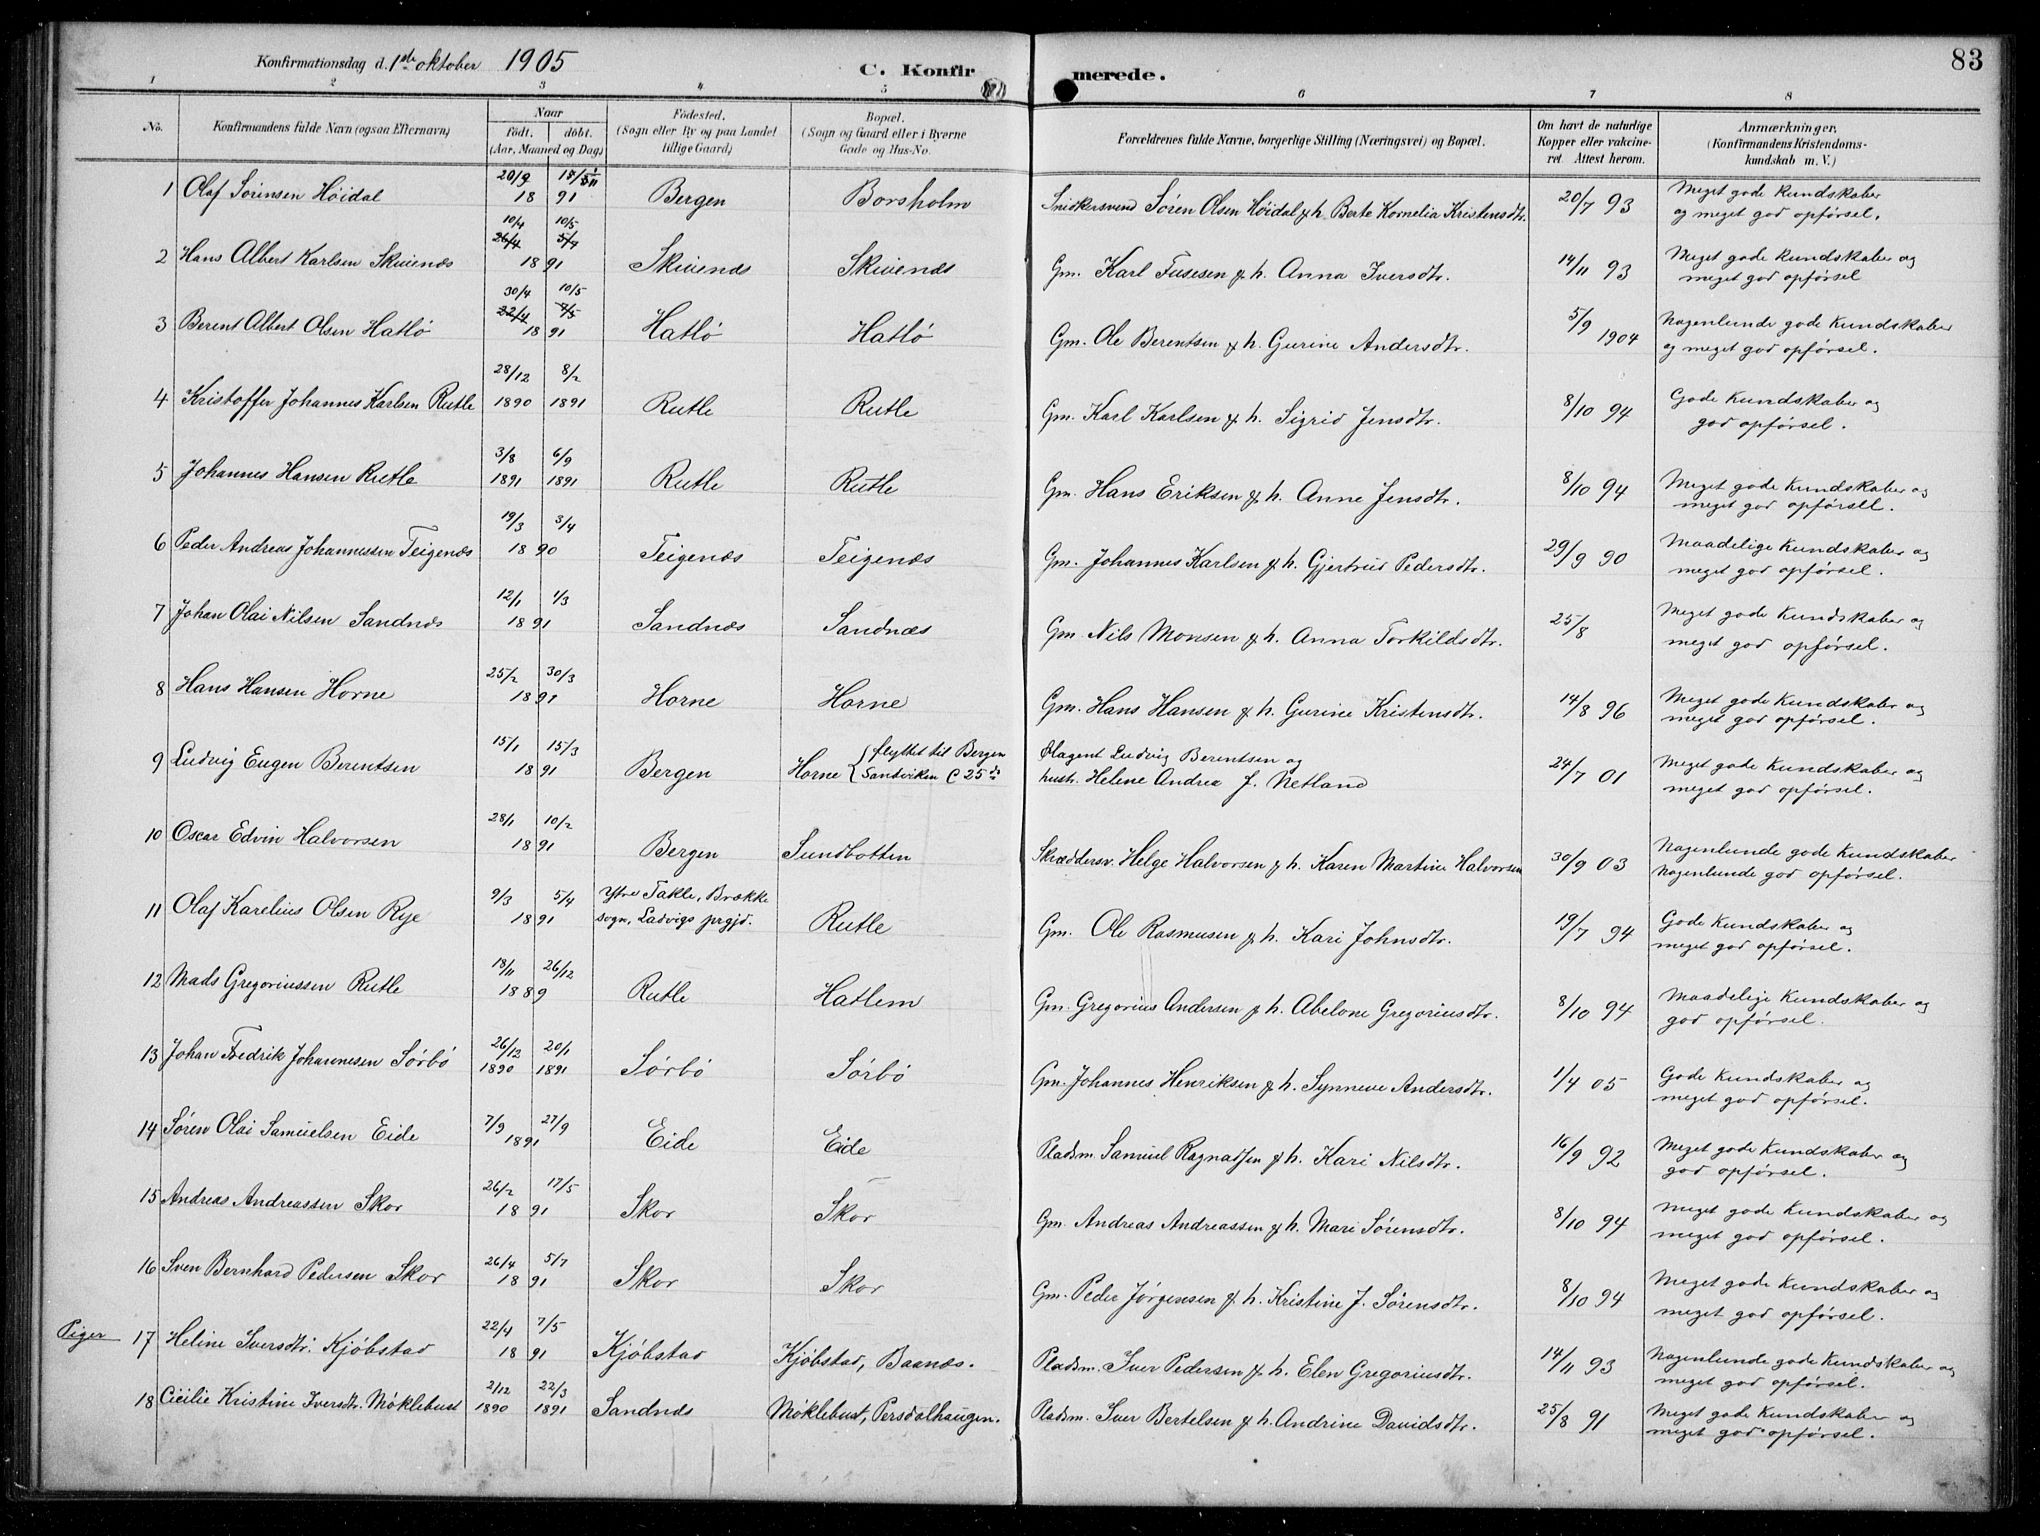 83
Konfirmationsdag d. 1ste oktober 1905
C. Konfirmerede.
1 2 3 4 5 6 7 8
No. | Konfirmandens fulde Navn (ogsaa Efternavn) | Naar Födt. döbt. (Aar, Maaned og Dag) | Födested. (Sogn eller By og paa Landet tillige Gaard) | Bopæl. (Sogn og Gaard eller i Byerne Gade og Hus-No. | Forældrenes fulde Navne, borgerlige Stilling (Næringsvei) og Bopæl. | Om havt de naturlige Kopper eller vakcineret. Attest herom. | Anmærkninger, (Konfirmandens Kristendomskundskab m. V.)
1 Olaf Sörinsen Höidal | 20/9 1891 | Bergen | Borsholm | Snidkersvend Sören Olsen Höidal & h. Berte Kornelia Kristensdtr. | 20/7 93 | Meget gode Kundskaber og meget god opförsel.
2 Hans Albert Karlsen Skivenæs | 10/4 26/4 10/5 1891 | Skivenæs | Skivenæs | Gm. Karl Tusesen & h. Anna Iversdtr. | 14/11 93 | Meget gode Kundskaber og meget god opförsel
3 Berent Albert Olsen Hatlö | 30/4 22/4 10/5 7/5 1891 | Hatlö | Hatlö | Gm. Ole Berentsen & h. Gurine Andersdtr. | 5/9 1904 | Nogenlunde gode Kundskaber og meget god opförsel.
4 Kristoffer Johannes Karlsen Rutle | 28/12 1890 8/2 1891 | Rutle | Rutle | Gm. Karl Karlsen & h. Sigrid Jensdtr. | 8/10 94 | Gode Kundskaber og god opförsel.
5 Johannes Hansen Rutle | 3/8 1891 6/9 1891 | Rutle | Rutle | Gm. Hans Eriksen & h. Anne Jensdtr. | 8/10 94 | Meget gode Kundskaber og meget god opförsel.
6 Peder Andreas Johannessen Teigenæs | 19/3 3/4 1890 | Teigenæs | Teigenæs | Gm. Johannes Karlsen & h. Gjertrud Pedersdtr. | 29/9 90 | Maadelige Kundskaber og meget god opförsel.
7 Johan Olai Nilsen Sandnæs | 12/1 1/3 1891 | Sandnæs | Sandnæs | Gm. Nils Monsen & h. Anna Torkildsdtr. | 25/8 | Meget gode Kundskaber og meget god opförsel.
8 Hans Hansen Horne | 25/2 30/3 1891 | Horne | Horne | Gm. Hans Hansen & h. Gurine Kristensdtr. | 14/8 96 | Meget gode Kundskaber og meget god opförsel.
9 Ludvig Eugen Berentsen | 15/1 15/3 1891 | Bergen | Horne { flyttet til Bergen Sandviken C 25 | Ölagent Ludvig Berentsen og hustr. Helene Andrea J. Netland | 24/7 01 | Meget gode Kundskaber og meget god opförsel.
10 Oscar Edvin Halvorsen | 28/1 10/2 1891 | Bergen | Sundbotten | Skræddersv. Helge Halvorsen & h. Karen Martine Halvorsen | 30/9 03 | Nogenlunde gode Kundskaber Nogenlunde god opförsel.
11 Olaf Karelius Olsen Rye | 9/3 5/4 1891 | Ytre Takle, Brække sogn, Ladvigs prgjd. | Rutle | Gm. Ole Rasmusen & h. Kari Johnsdtr. | 19/7 94 | Gode Kundskaber og meget god opförsel.
12 Mads Gregoriussen Rutle | 18/11 26/12 1889 | Rutle | Hatlem | Gm. Gregorius Andersen & h. Abelone Gregoriusdtr. | 8/10 94 | Maadelige Kundskaber og god opförsel.
13 Johan Fredrik Johannesen Sörbö | 26/12 1890 20/1 1891 | Sörbö | Sörbö | Gm. Johannes Henriksen & h. Synneve Andersdtr. | 1/4 05 | Gode Kundskaber og meget god opförsel.
14 Sören Olai Samuelsen Eide | 7/9 27/9 1891 | Eide | Eide | Pladsm. Samuel Ragnadsen & h. Kari Nilsdtr. | 16/9 92 | Meget gode Kundskaber og god opförsel.
15 Andreas Andreassen Skor | 26/2 17/5 1891 | Skor | Skor | Gm. Andreas Andreassen & h. Mari Sörensdtr. | 8/10 94 | Meget gode Kundskaber og meget god opförsel.
16 Sven Bernhard Pedersen Skor | 26/4 5/7 1891 | Skor | Skor | Gm. Peder Jörgensen & h. Kristine J. Sörensdtr. | 8/10 94 | Meget gode Kundskaber og meget god opförsel.
Piger 17 Heline Iversdtr. Kjöbstad | 22/4 7/5 1891 | Kjöbstad | Kjöbstad, Baanæs. | Pladsm. Iver Pedersen & h. Elen Gregoriusdtr. | 14/11 93 | Nogenlunde gode Kundskaber og meget god opförsel.
18 Cicilie Kristine Iversdtr. Möklebust | 2/12 1890 22/3 1891 | Sandnæs | Möklebust, Persdalhaugen. | Pladsm. Iver Bertelsen & h. Andrine Davidsdtr. | 25/8 91 | Meget gode Kundskaber og meget god opförsel.